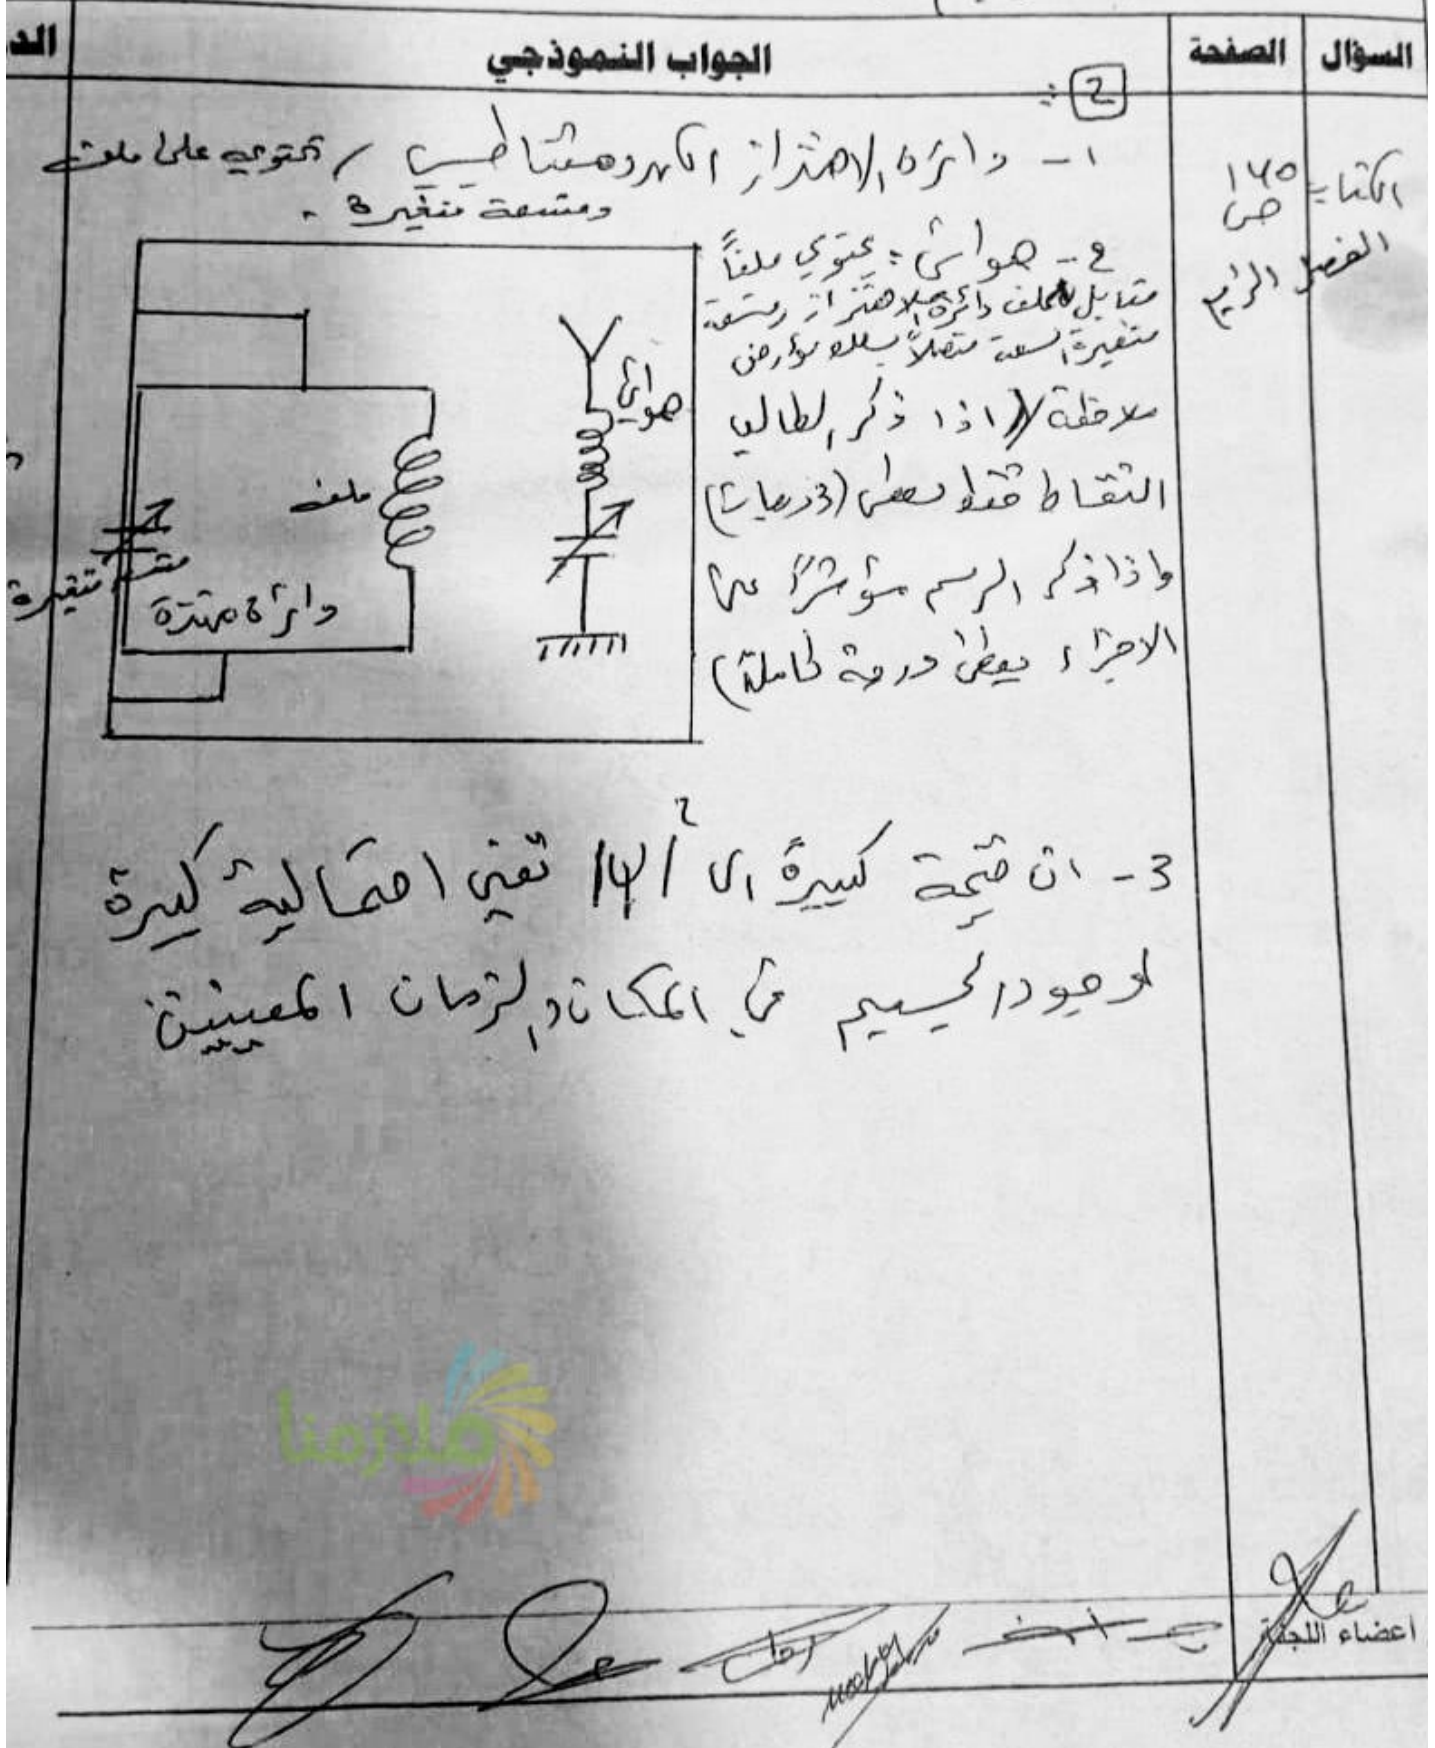 السؤال
الصفحة
الجواب النموذجي
الد
2
الكتاب
ص ١٦٥
الفصل الرابع
١- دائرة الاهتزاز الكهرومغناطيسي / تحتوي على ملف
ومتسعة متغيرة .
٢- هوائي : يحتوي ملفاً
مقابل لملف دائرة الاهتزاز ومتسعة
متغيرة السعة متصلاً بسلك مؤرض
ملاحظة // اذا ذكر الطالب
النقاط فقط يعطى (3 درجات)
واذا ذكر الرسم مؤشراً على
الاجزاء يعطى درجة كاملة)
هوائي
ملف
متسعة متغيرة
دائرة مهتزة
3- ان قيمة كبيرة الى |Ψ|² تعني احتمالية كبيرة
لوجود الجسيم في المكان والزمان المعينين
ملازمنا
اعضاء اللجنة